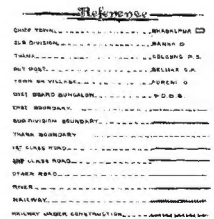 Reference
CHIEF TOWN BHAGALPUR
SUB DIVISION BANKA
THANA COLGONG P.S.
OUT POST
TOWN OR VILLAGE
DIST BOARD BUNGALOW P.D.B.
DIST BOUNDARY
SUB DIVISION BOUNDARY
THANA BOUNDARY
1ST CLASS ROAD
CLASS ROAD
OTHER ROAD
RIVER
RAILWAY
RAILWAY UNDER CONSTRUCTION